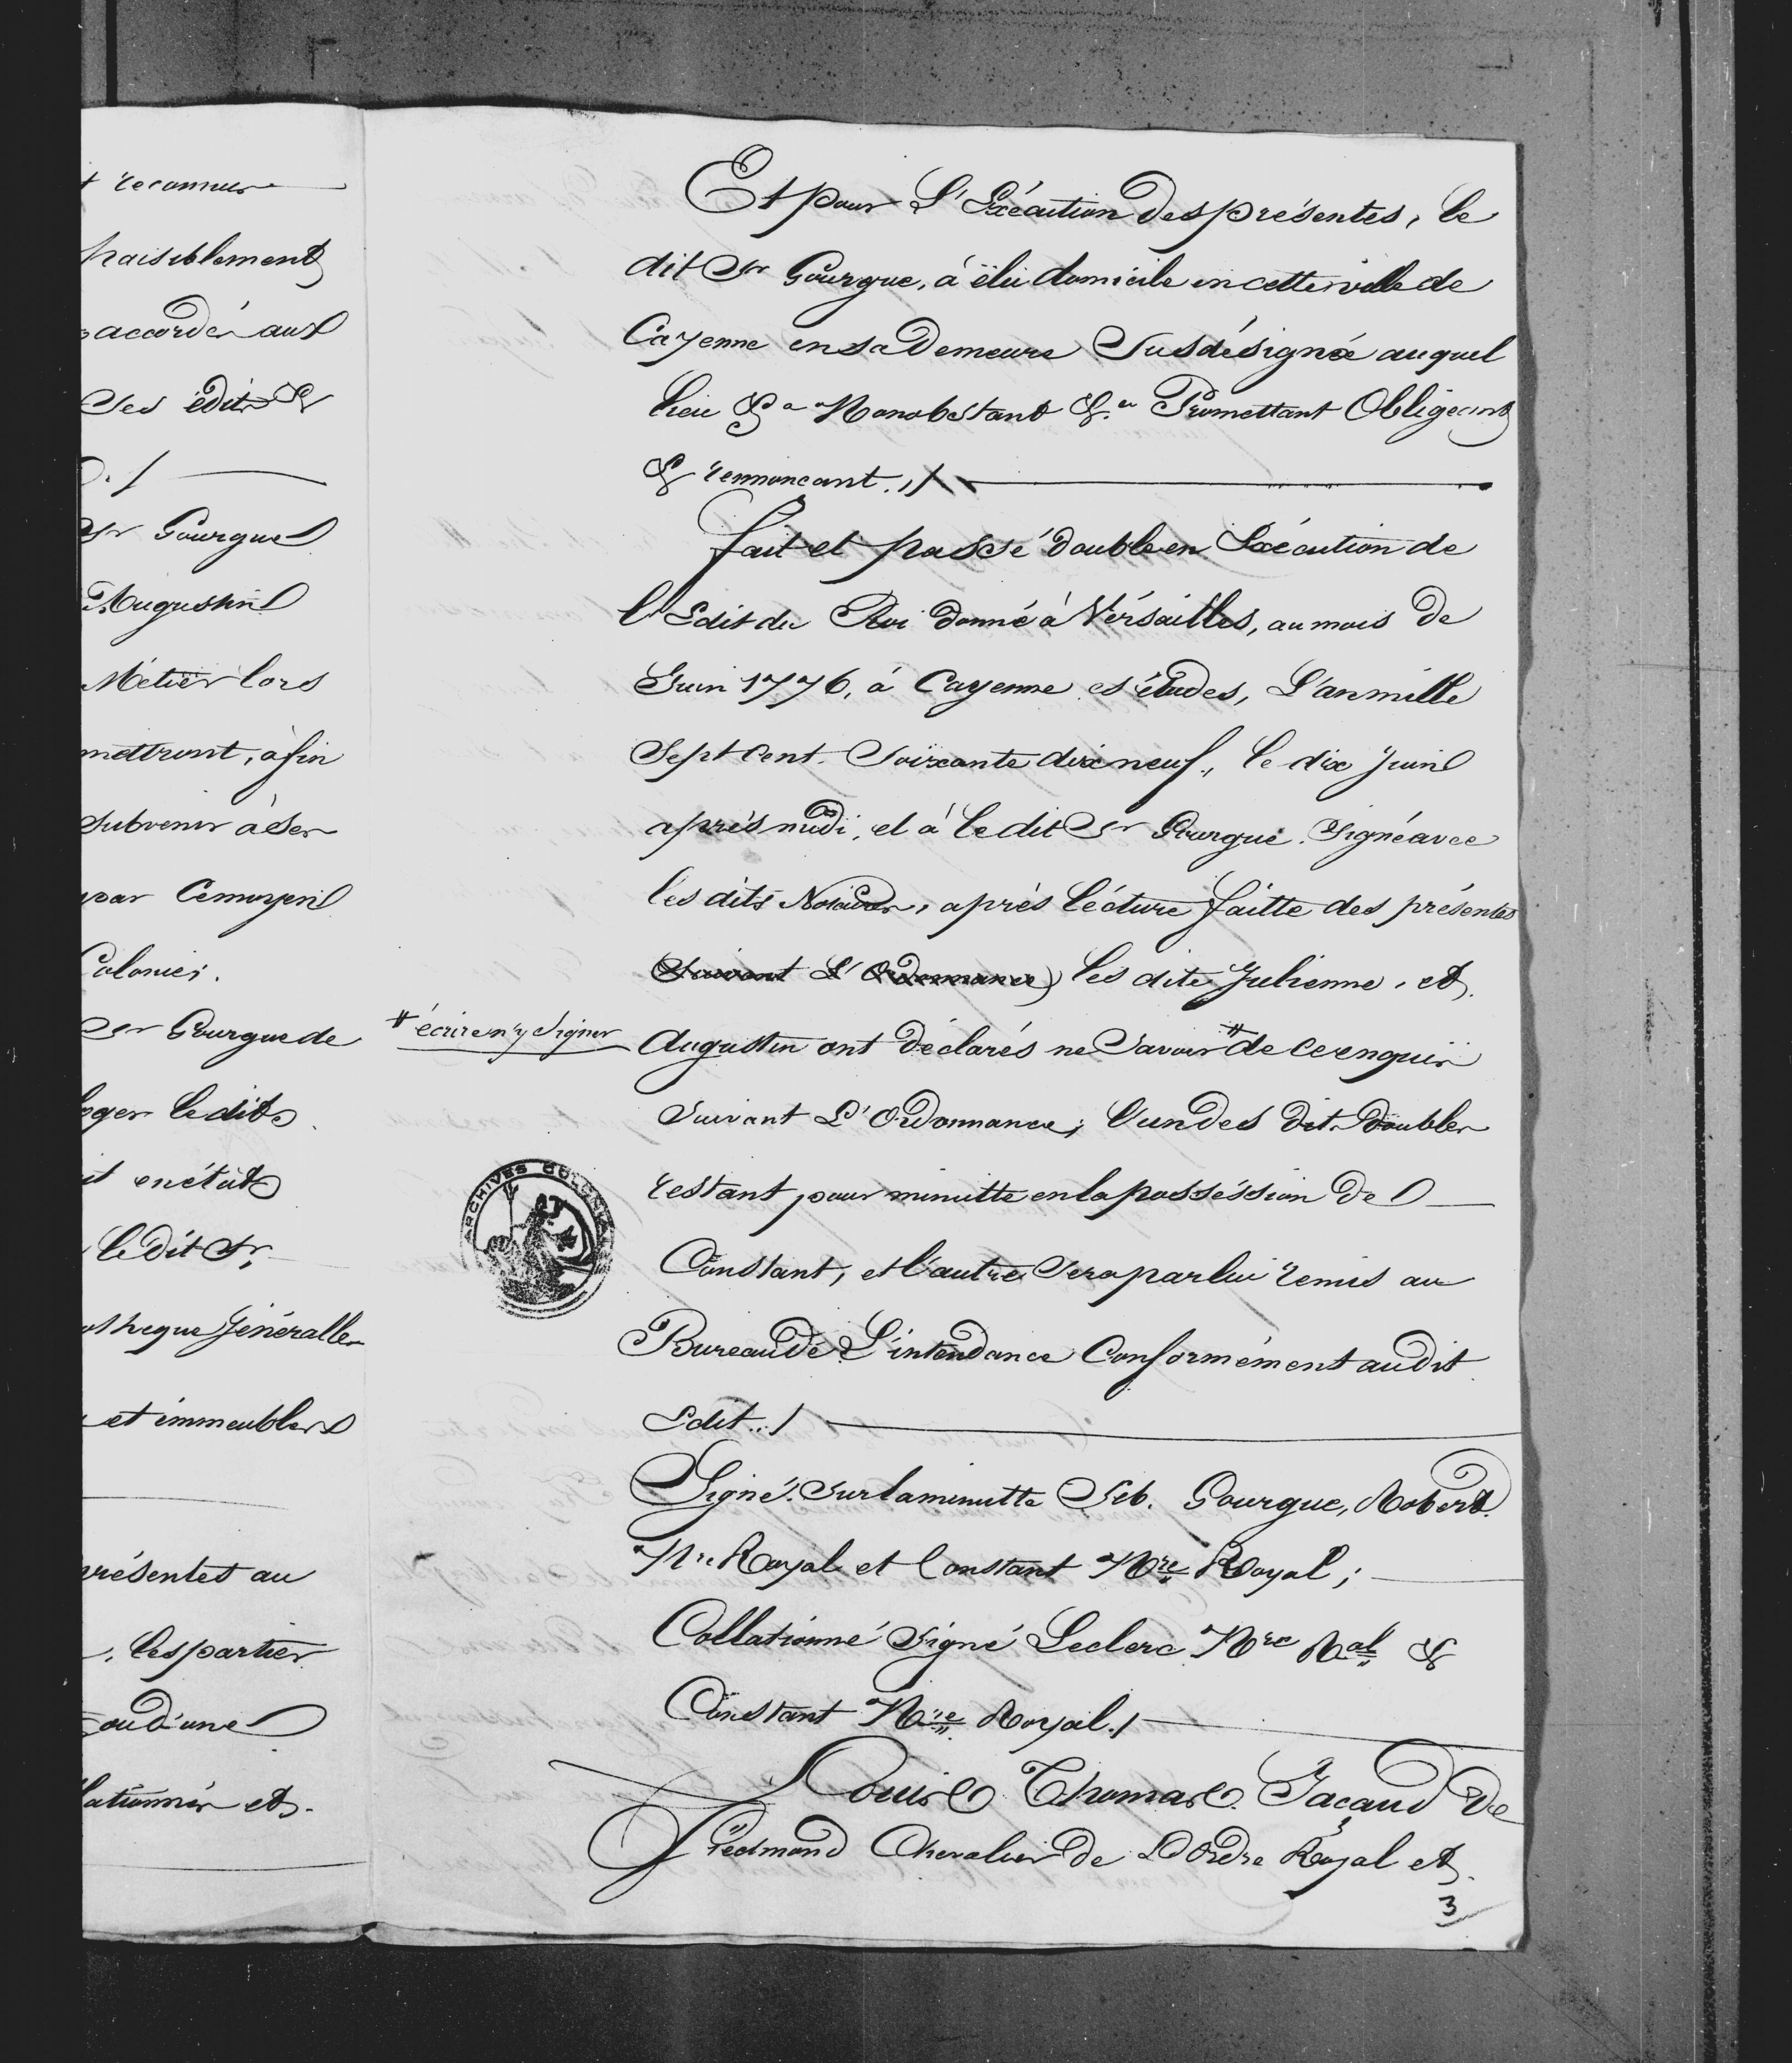 t reconnus
paisiblement
accordés aux
Ses édits &
D./.
Sr Gourgue
Augustin
Métier lors
mettront, afin
Subvenir à Ses
par Cemoyen
Colonies.
Sr Gourgue de
loger ledit
it en état
ledit Sr,
otheque Généralle
et immeubles
présentes au
, les parties
ou d'une
lationnés et
Et pour L'Exécution des présentes, le
dit Sr Gourgue, à élu domicile en cette ville de
Cayenne en sa Demeure Susdésignée auquel
lieu &a Nonobstant &a Promettant Obligeant
& rennoncant ./.
fait et passé double en Exécution de
l'Edit du Roi donné à Vérsailles, au mois de
Juin 1776, à Cayenne es études, L'an mille
Sept Cent Soixante dix neuf, le dix Juin
après midi, et à ledit Sr Gourgue Signé avec
les dits Notaires, après lécture faitte des présentes
(Suivant L'Ordonnance) les dits Julienne, et
# écrire n'y Signer
Augustin ont déclarés ne Savoir # de ce enquis
Suivant L'Ordonnance; l'un des dits doubles
restant pour minutte en la posséssion de
Constant, et l'autre Sera par lui remis au
ARCHIVES COLONIALES
Bureau de L'intendance Conformément audit
Edit ./.
Signé Sur la minutte Seb. Gourgue, Robert
Nre Royal et Constant Nre Royal;
Collationné Signé Leclerc Nre Ral &
Constant Nre Royal ./.
Louis Thomas Jacaud De
Fiedmond Chevalier de L'Ordre Royal et
3